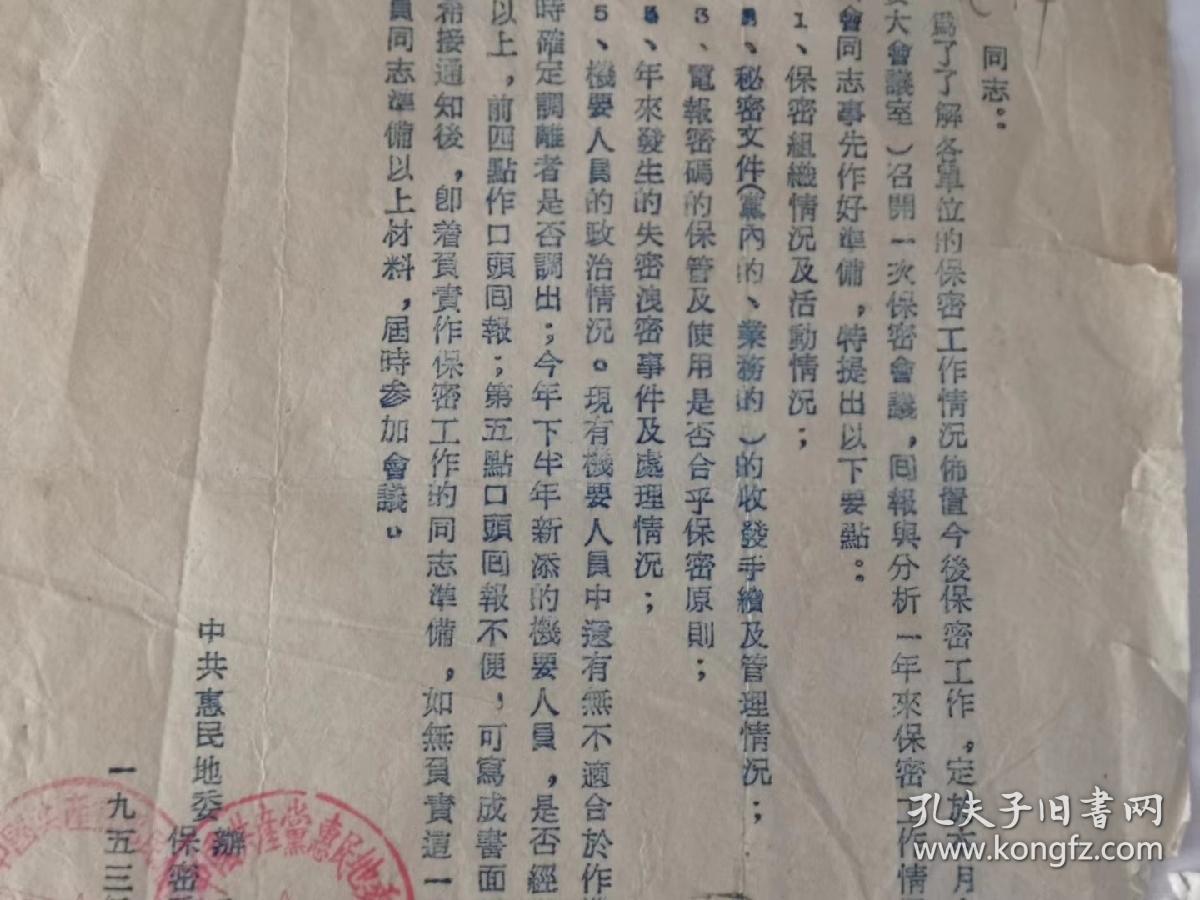 同志：
爲了了解各單位的保密工作情況佈置今後保密工作，定於本月
大會議室）召開一次保密會議，囘報與分析一年來保密工作情
會同志事先作好準備，特提出以下要點：
1、保密組織情況及活動情況；
2、秘密文件（黨內的、業務的）的收發手續及管理情況；
3、電報密碼的保管及使用是否合乎保密原則；
4、年來發生的失密洩密事件及處理情況；
5、機要人員的政治情況。現有機要人員中還有無不適合於作
時確定調離者是否調出；今年下半年新添的機要人員，是否經
以上，前四點作口頭囘報；第五點口頭囘報不便，可寫成書面
希接通知後，卽着負責作保密工作的同志準備，如無負責這一
員同志準備以上材料，屆時参加會議。
中共惠民地委辦
保密
一九五三年
產黨惠民地
孔夫子旧書网
www.kongfz.com